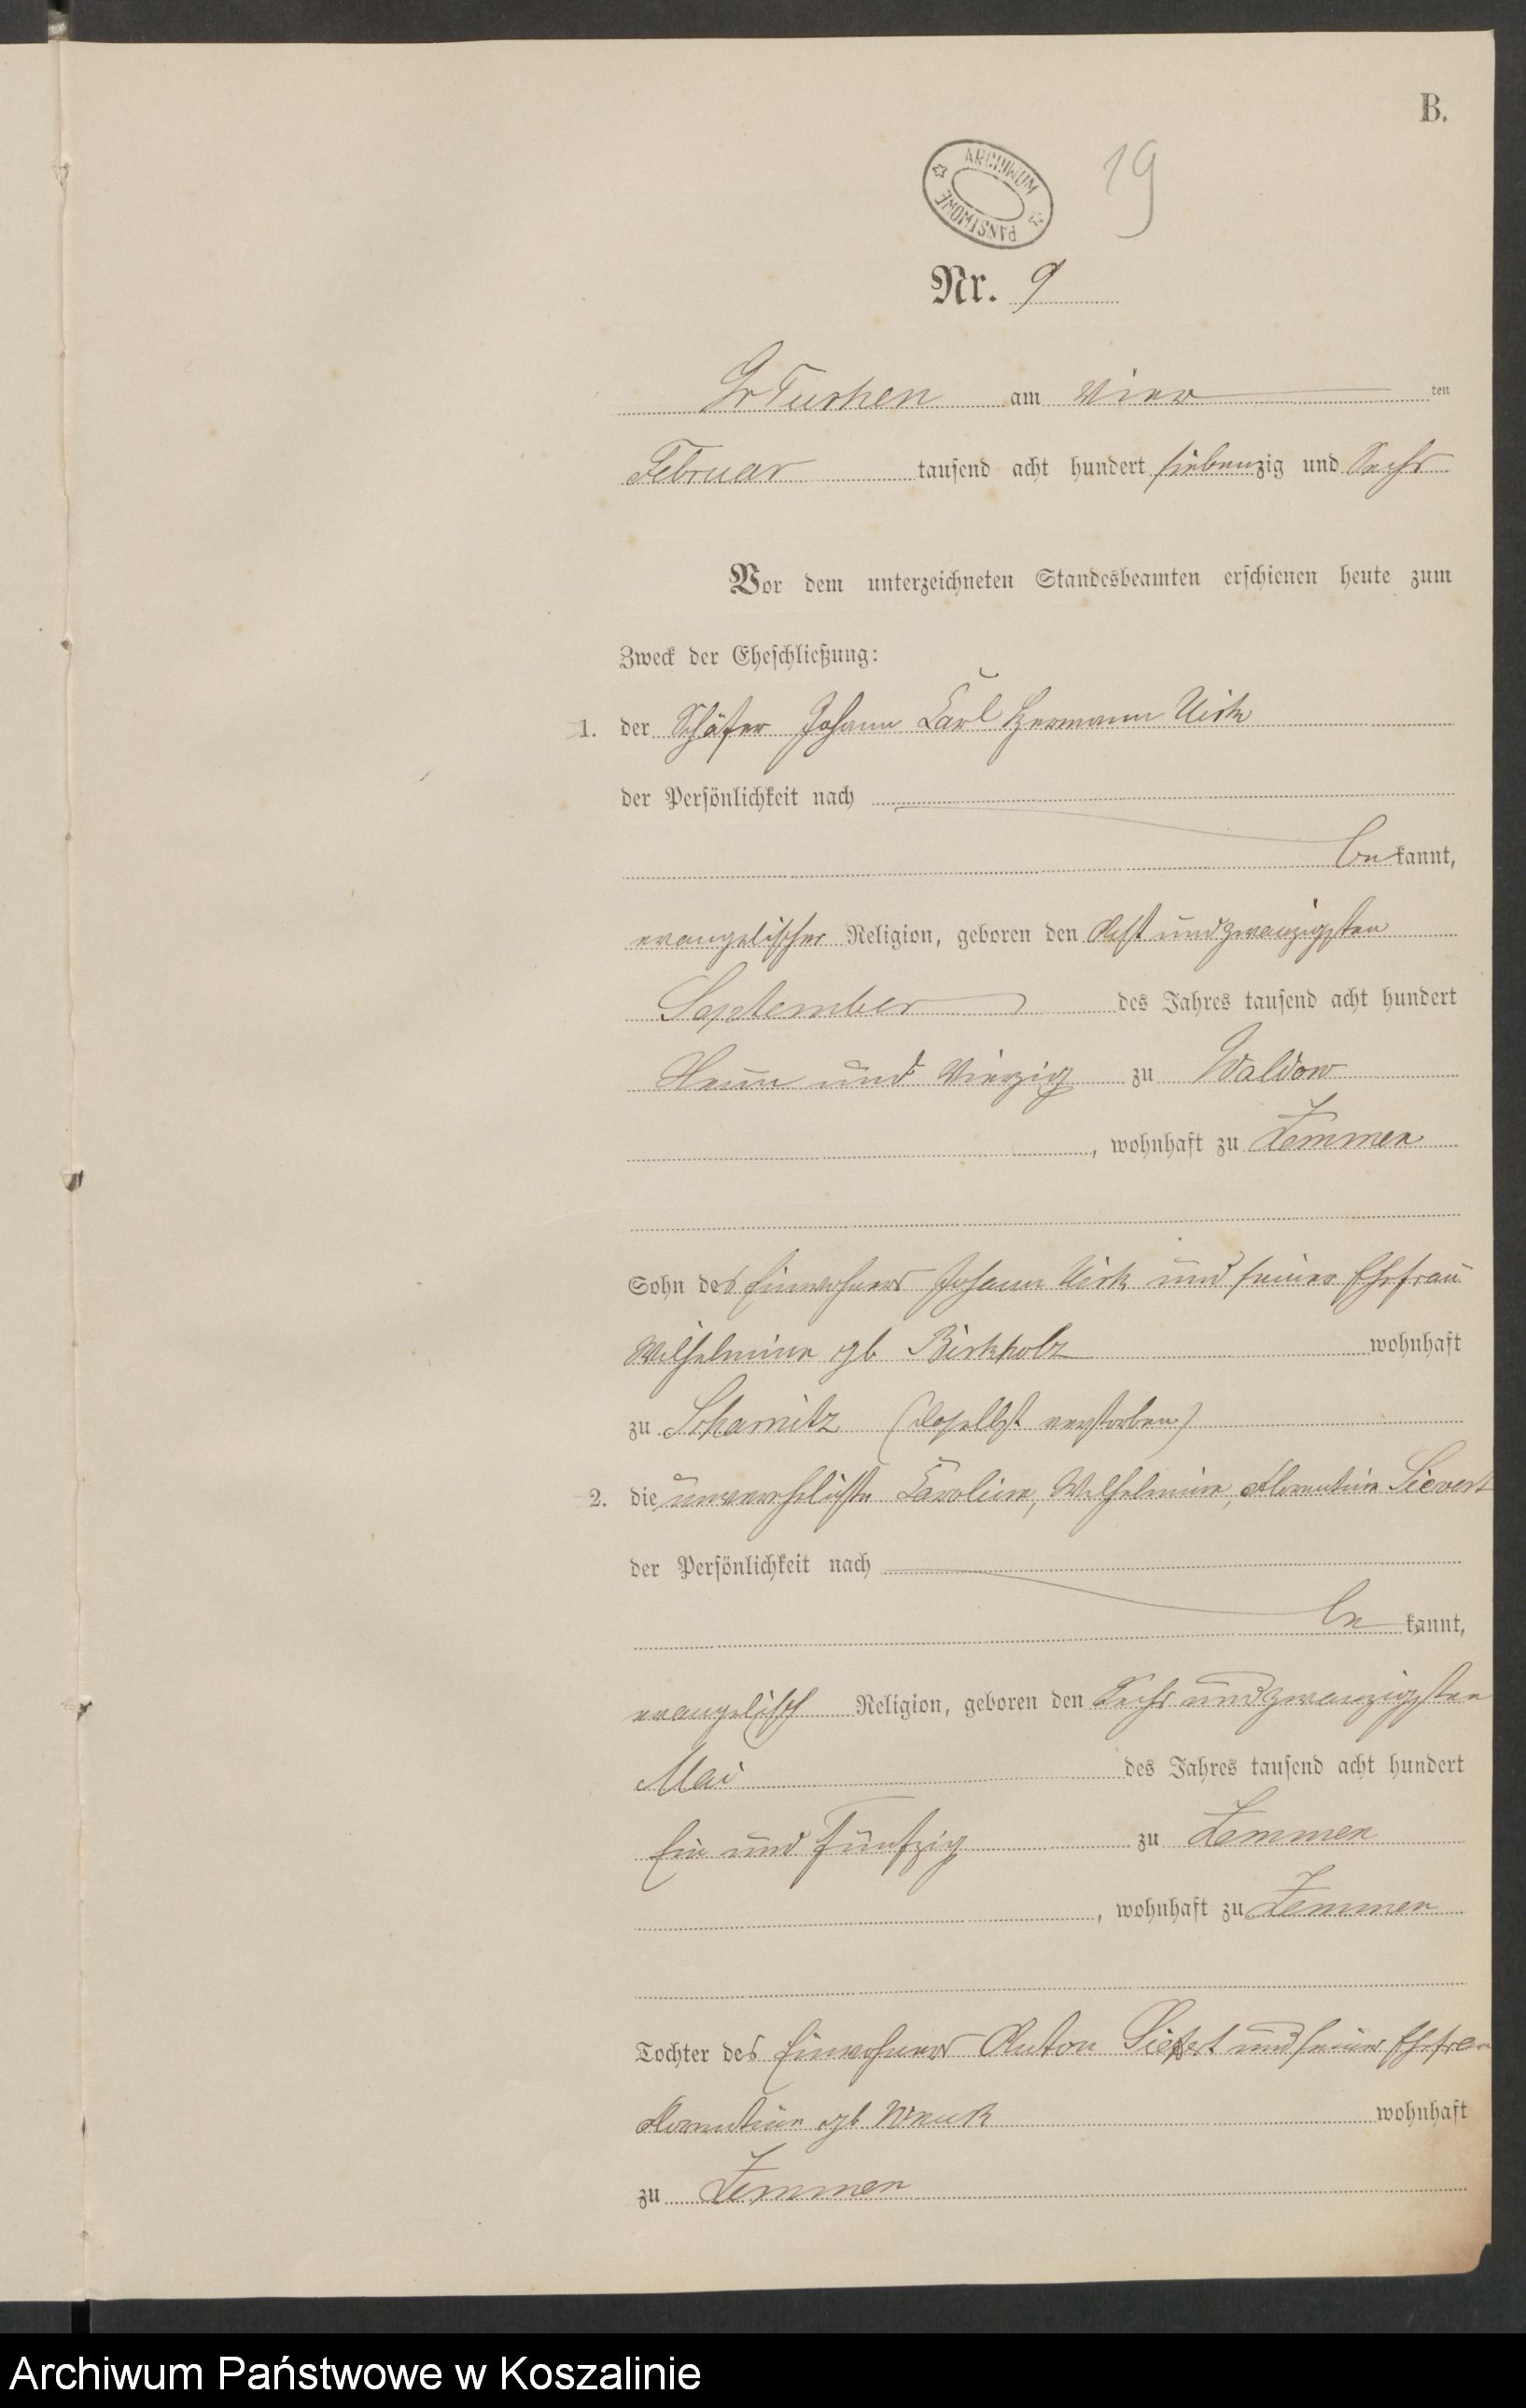 B.
ARCHIWUM PAŃSTWOWE
19
Nr. 9
Gr Tuchen am vier ten
Februar tausend acht hundert siebenzig und Sechs
Vor dem unterzeichneten Standesbeamten erschienen heute zum
Zweck der Eheschließung:
1. der Schäfer Johann Carl Hermann
der Persönlichkeit nach
bekannt,
evangelischer Religion, geboren den Acht und zwanzigsten
September des Jahres tausend acht hundert
Neun und Vierzig zu Waldow
, wohnhaft zu Zemmen
Sohn des Einwohners Johann und seiner Ehefrau
Wilhelmine geb Birkholz wohnhaft
zu (daselbst verstorben)
2. die unverehelichte Caroline, Wilhelmine, Florentine Sievert
der Persönlichkeit nach
be kannt,
evangelisch Religion, geboren den Sechs und zwanzigsten
Mai des Jahres tausend acht hundert
Ein und Fünfzig zu Zemmen
, wohnhaft zu Zemmen
Tochter des Einwohners Anton und seiner Ehefrau
Florentine geb wohnhaft
zu Zemmen
Archiwum Państwowe w Koszalinie